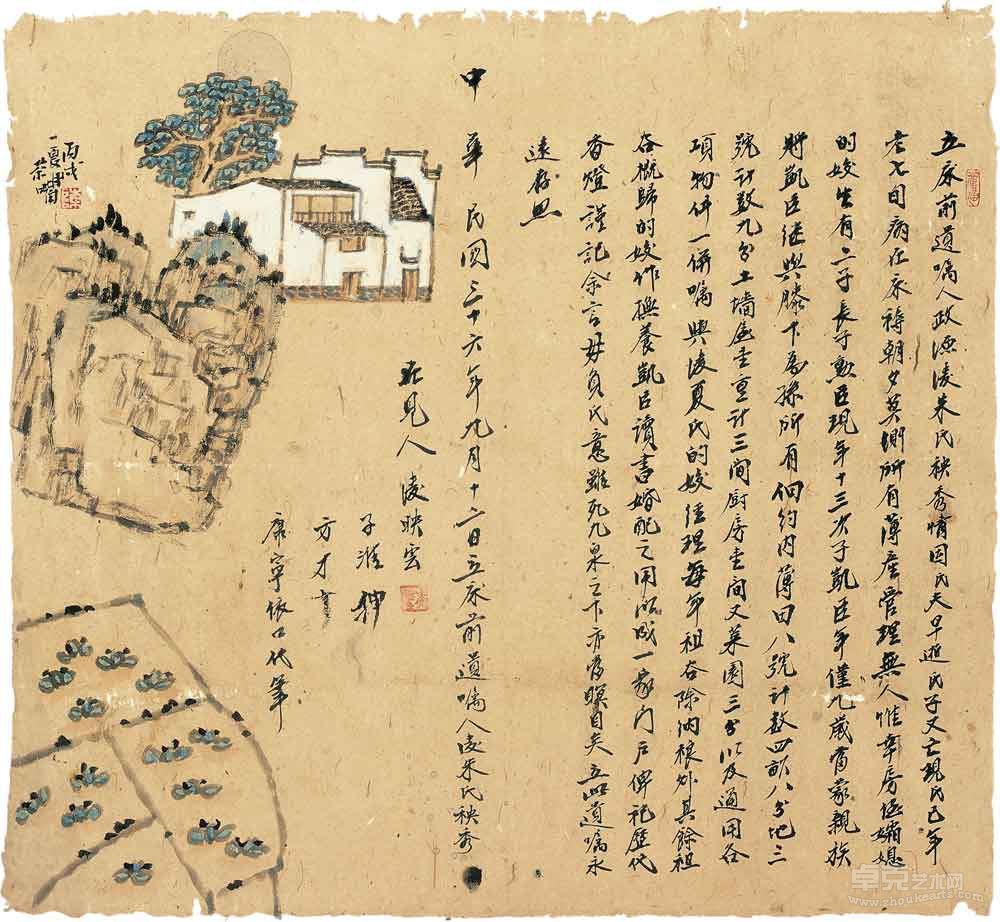 立床前遺囑人政源凌朱氏秧秀情因氏夫早逝氏子又亡現氏已年
老七旬病在床褥朝夕莫測所有薄產管理無人惟幸房侄孀媳
的姣生有二子長子勲臣現年十三次子凱臣年僅九歲當蒙親族
將凱臣继與膝下為孫所有佃約内薄田八號计数四畝八分地三
號计数九分土墙屋壹重计三间厨房壹间又菜園三分以及通用各
項物件一併囑與凌夏氏的姣经理每年祖谷除纳粮外其餘祖
谷概歸的姣作撫養凱臣讀書婚配之用以成一家门户俾祀歷代
香燈謹記余言毋負氏意雖死九泉之下亦當瞑目矣立此遺囑永
遠存照
中
華民國三十六年九月十六日立床前遺囑人凌朱氏秧秀
在見人凌映雲
子淮押
方才
康寧依口代筆
丙戌
夏月
卓克艺术网
www.zhoukearts.com